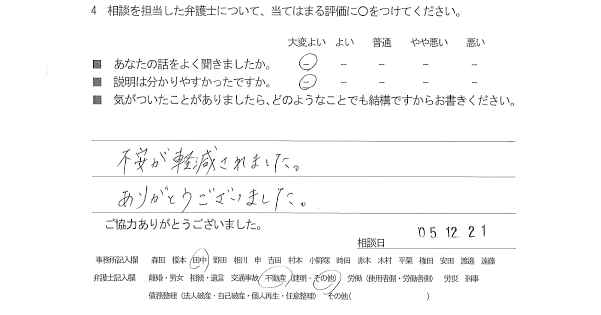 4 相談を担当した弁護士について、当てはまる評価に○をつけてください。
大変よい よい 普通 やや悪い 悪い
■ あなたの話をよく聞きましたか。 － － － － －
■ 説明は分かりやすかったですか。 － － － － －
■ 気がついたことがありましたら、どのようなことでも結構ですからお書きください。
不安が軽減されました。
ありがとうございました。
ご協力ありがとうございました。
相談日 05.12.21
事務所記入欄 森田 榎本 田中 野田 相川 申 吉田 村本 小野塚 時田 赤木 木村 平栗 権田 安田 渡邉 遠藤
弁護士記入欄 離婚・男女 相続・遺言 交通事故 不動産 (建明・その他) 労働 (使用者側・労働者側) 労災 刑事
債務整理 (法人破産・自己破産・個人再生・任意整理) その他( )